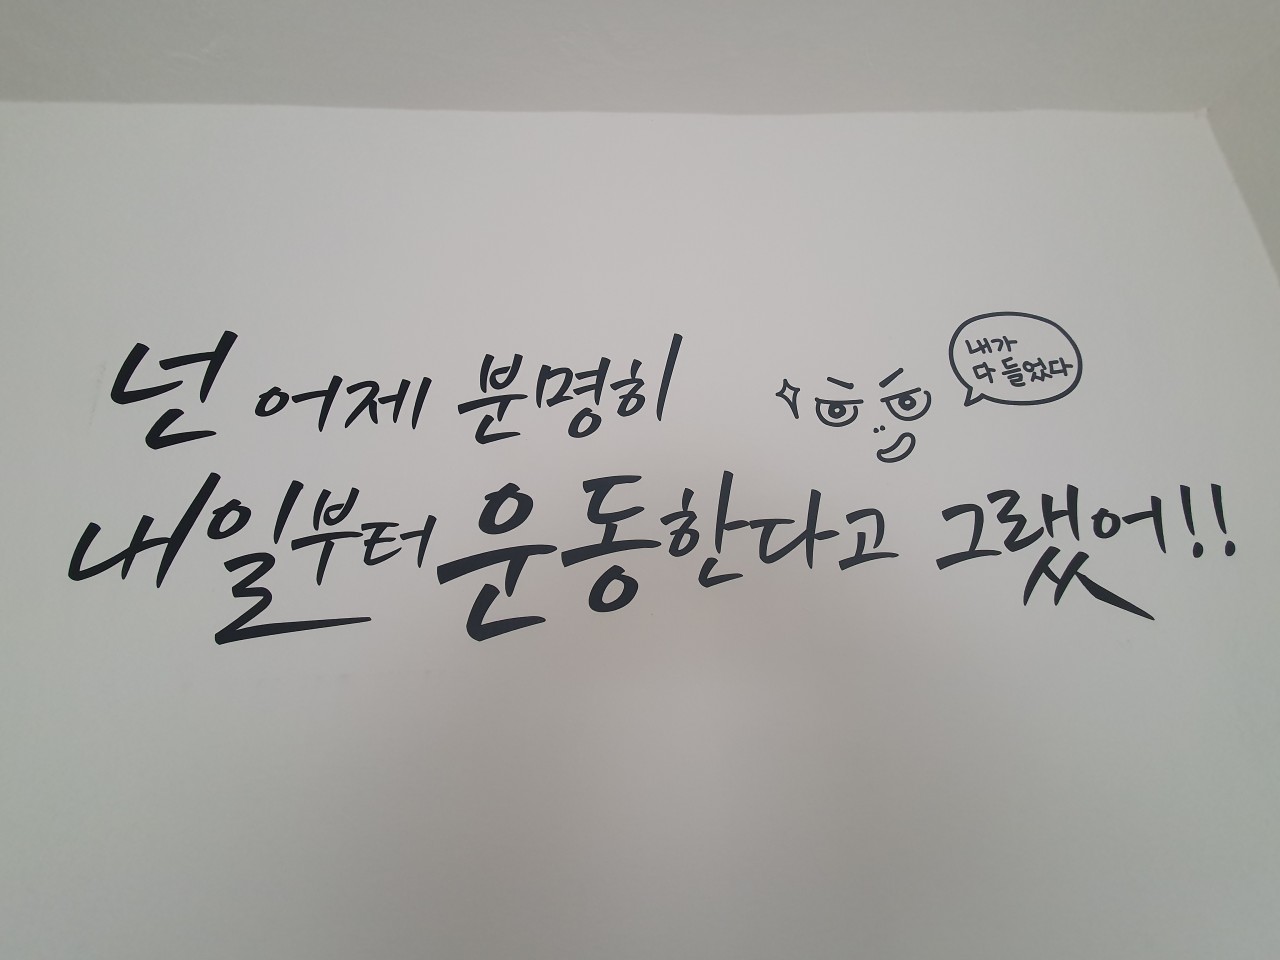 넌 어제 분명히
내가
다 들었다
내일부터 운동한다고 그랬어!!